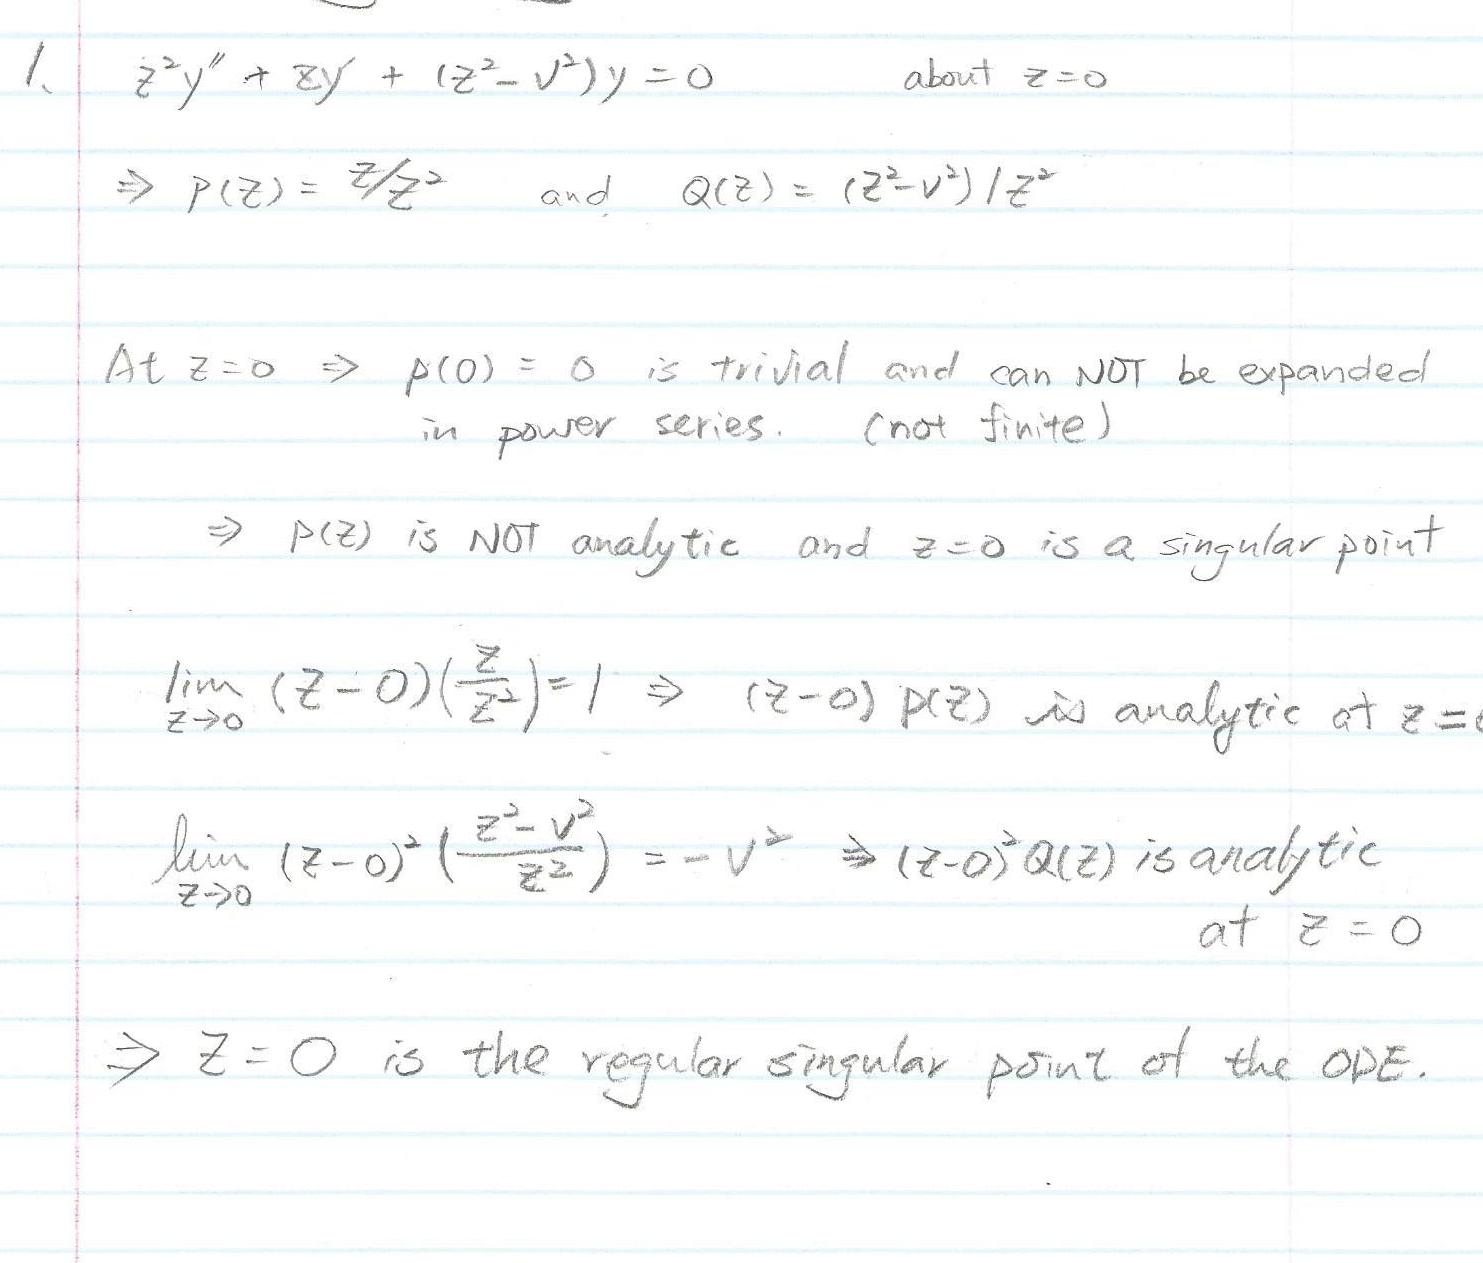 1. z²y" + zy' + (z²-ν²)y = 0 about z=0
⇒ P(z) = z/z² and Q(z) = (z²-ν²)/z²
At z=0 ⇒ p(0) = 0 is trivial and can NOT be expanded
in power series. (not finite)
⇒ P(z) is NOT analytic and z=0 is a singular point
lim z→0 (z-0)(z/z²) = 1 ⇒ (z-0) P(z) is analytic at z=0
lim z→0 (z-0)² ((z²-ν²)/z²) = -ν² ⇒ (z-0)² Q(z) is analytic
at z=0
⇒ z=0 is the regular singular point of the ODE.